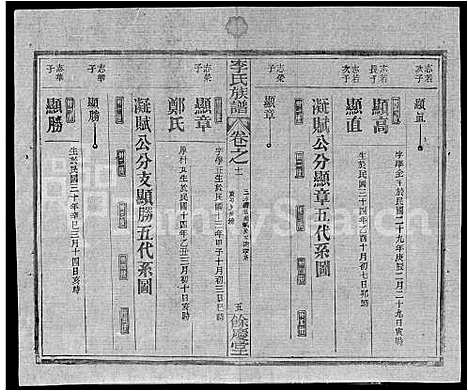 志若
次子
顯直
志若
長子
顯高
字學全生於民國二十九年庚辰二月二十九日寅時
志若
次子
顯直
生於民國三十四年乙酉十月初七日卯時
凝賦公分顯章五代系圖
志榮
子
顯章
李氏族譜
卷之十
五
餘慶堂
志榮
子
顯章
生於民國十三年甲子十月初三日巳時
鄭氏
原村女生於民國十四年乙丑三月初十日亥時
凝賦公分支顯勝五代系圖
志華
子
顯勝
志華
子
顯勝
生於民國三十年辛巳三月十四日亥時
FamilySearch